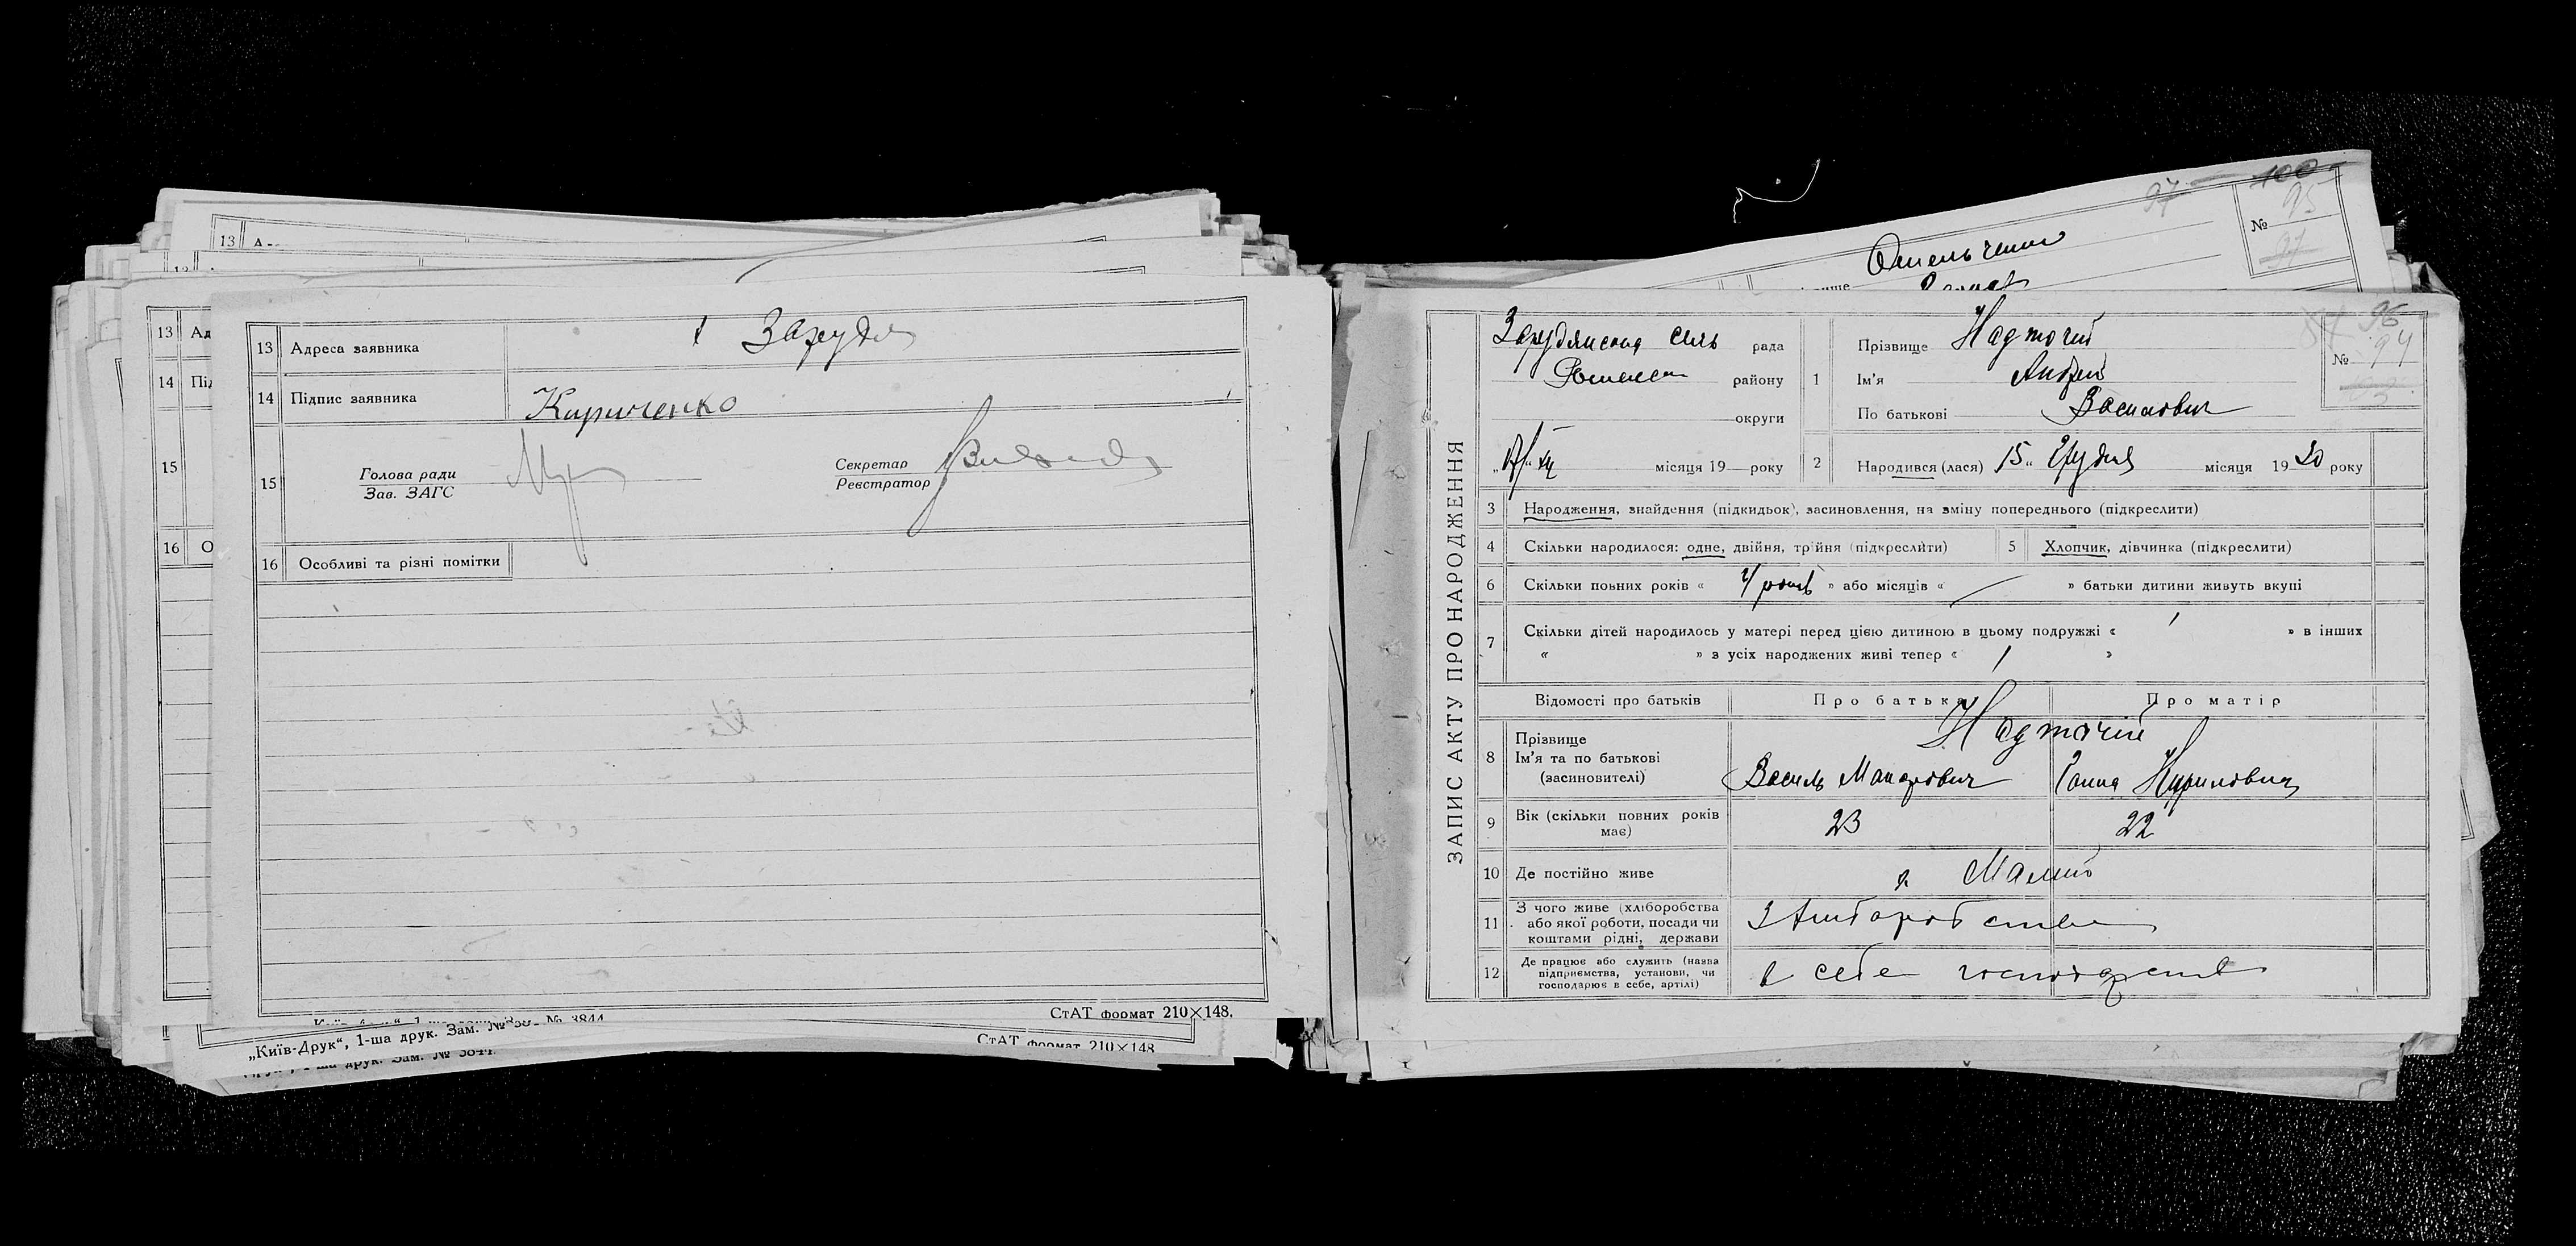 13 Адреса заявника Заруддя
14 Підпис заявника Кириченко
15 Голова ради
Зав. ЗАГС
Секретар
Реєстратор
16 Особливі та різні помітки
СтАТ формат 210×148.
„Київ-Друк“, 1-ша друк. Зам. № 3844
СтАТ формат 210×148
13 Ад
14 Під
15
16 О
97 100
№ 95
97
Омельченко
ЗАПИС АКТУ ПРО НАРОДЖЕННЯ
Зарудянська сель рада
району
округи
місяця 19 року
96
№ 94
1 Прізвище Надточий
Ім'я Андрей
По батькові Василович
2 Народився (лася) 15 Грудня місяця 1930 року
3 Народження, знайдення (підкидьок), засиновлення, на зміну попереднього (підкреслити)
4 Скільки народилося: одне, двійня, трійня (підкреслити)
5 Хлопчик, дівчинка (підкреслити)
6 Скільки повних років « 4 років » або місяців « » батьки дитини живуть вкупі
7 Скільки дітей народилось у матері перед цією дитиною в цьому подружжі « 1 » в інших
« » з усіх народжених живі тепер « 1 »
Відомості про батьків Про батька Про матір
8 Прізвище
Ім'я та по батькові
(засиновителі)
Надточій
Василь Макарович Ганна Кириловна
9 Вік (скільки повних років має) 23 22
10 Де постійно живе х. Малий
11 З чого живе (хліборобства або якої роботи, посади чи коштами рідні, держави З хліборобства
12 Де працює або служить (назва підприємства, установи, чи господарює в себе, артілі) в себе господарстві